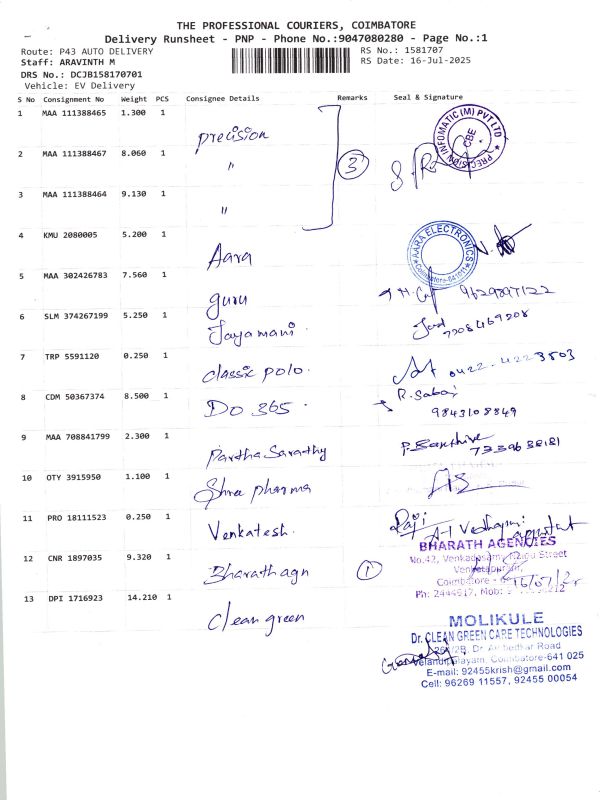 THE PROFESSIONAL COURIERS, COIMBATORE
Delivery Runsheet - PNP - Phone No.:9047080280 - Page No.:1
Route: P43 AUTO DELIVERY
RS No.: 1581707
Staff: ARAVINTH M
RS Date: 16-Jul-2025
DRS No.: DCJB158170701
Vehicle: EV Delivery
S No Consignment No Weight PCS Consignee Details Remarks Seal & Signature
1 MAA 111388465 1.300 1 precision
PRECISION INFOMATIC (M) PVT LTD
CBE
2 MAA 111388467 8.060 1 "
3
3 MAA 111388464 9.130 1 "
4 KMU 2080005 5.200 1 Aara
AARA ELECTRONICS
5 MAA 302426783 7.560 1 guru
6 SLM 374267199 5.250 1 Jayamani.
7 TRP 5591120 0.250 1 classic polo.
0422-4223503
8 CDM 50367374 8.500 1 Do 365.
R. Sabai
9843108849
9 MAA 708841799 2.300 1 Partha Sarathy
10 OTY 3915950 1.100 1 Shree pharma
11 PRO 18111523 0.250 1 Venkatesh.
12 CNR 1897035 9.320 1 Bharath agn 1
BHARATH AGENCIES
No.42, Street
Coimbatore
Ph: Mob:
13 DPI 1716923 14.210 1 Clean green
MOLIKULE
Dr. CLEAN GREEN CARE TECHNOLOGIES
Road
Velandipalayam, Coimbatore-641 025
E-mail: 92455krish@gmail.com
Cell: 96269 11557, 92455 00054